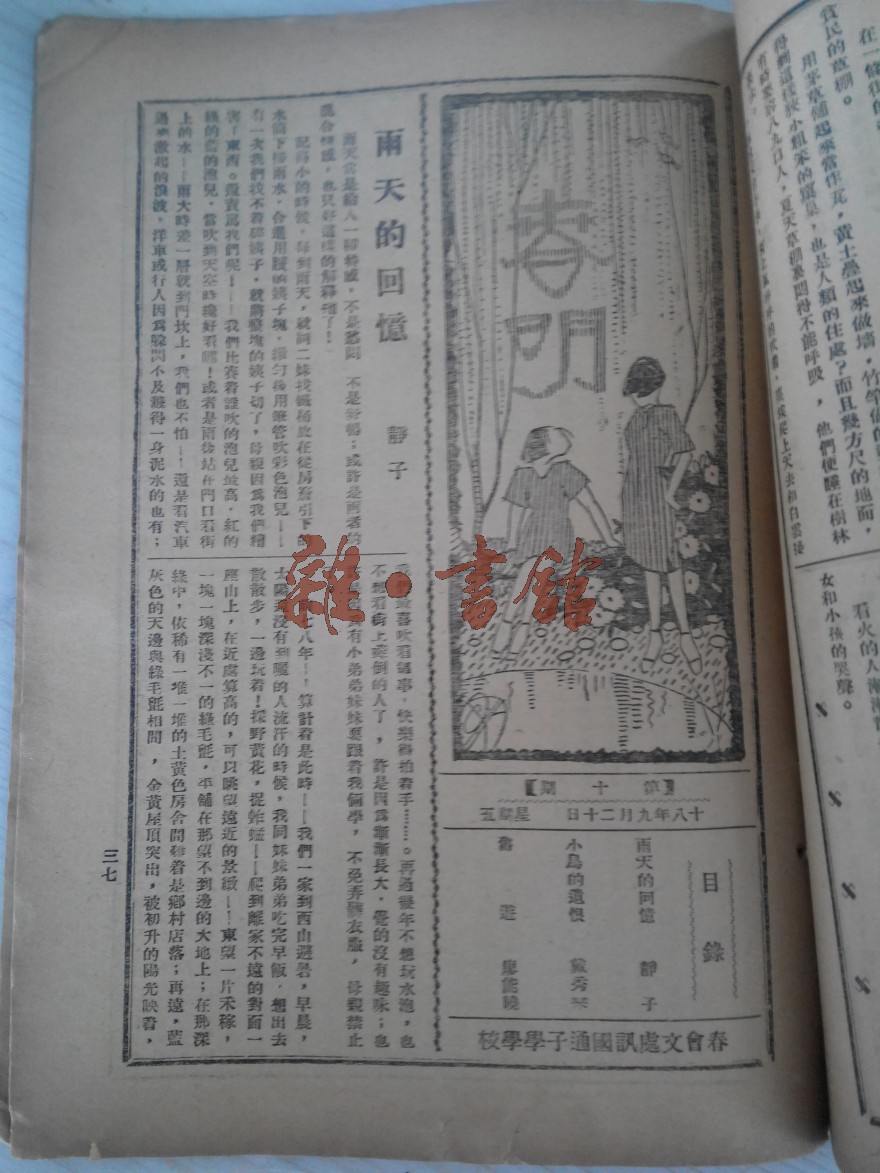 貧民的草棚。
用茅草鋪起來當作瓦，黃土壘起來做墻，竹竿
個這樣狹小粗笨的窠巢，也是人類的住處？而且幾方尺的地面，
有時要容八九口人，夏天草棚裏悶得不能呼吸，他們便睡在樹林
看火的人漸漸
女和小孩的哭聲。
春明
【第十期】
十八年九月二十日 星期五
目錄
雨天的回憶 靜子
小鳥的遺恨 戴秀琴
遊
雨天的回憶
靜子
雨天常是給人一種特感，不是愁悶，不是舒暢；或許是兩者的
混合情感，也只好這樣的解釋罷了！
記得小的時候，每到雨天，就同二妹找鐵桶放在從房簷引下的
水筒下接雨水，合進用腰的胰子塊，攪勻後用筆管吹彩色泡兒——
有一次我們找不着碎胰子，就將整塊的胰子切了，母親因爲我們糟
害東西。還責罵我們呢！——我們比賽着誰吹的泡兒最高，紅的
綠的藍的泡兒，當吹到天空時纔好看呢！或者是雨後站在門口看街
上的水——雨大時差一層就到門坎上，我們也不怕——還是看汽車
過來激起的浪波，洋車或行人因爲躲閃不及濺得一身泥水的也有；
我們最喜歡看這事，快樂得拍着手……。再過幾年不想玩水泡，也
不想看街上跌倒的人了，許是因爲漸漸長大，覺的沒有趣味；也
許是因爲有小弟弟妹妹要跟着我倆學，不免弄髒衣服，母親禁止
七八年——算計着是此時——我們一家到西山避暑，早晨，
太陽還沒有到曬的人流汗的時候，我同妹妹弟弟吃完早飯，想出去
散散步，一邊玩着！採野黃花，捉蚱蜢——爬到離家不遠的對面一
座山上，在近處算高的，可以眺望遠近的景緻——東望一片禾稼，
一塊一塊深淺不一的綠毛氈，平鋪在那望不到邊的大地上；在那深
綠中，依稀有一堆一堆的土黃色房舍間雜着是鄉村店落；再遠，藍
灰色的天邊與綠毛氈相間，金黃屋頂突出，被初升的陽光映着，
三七
雜·書館